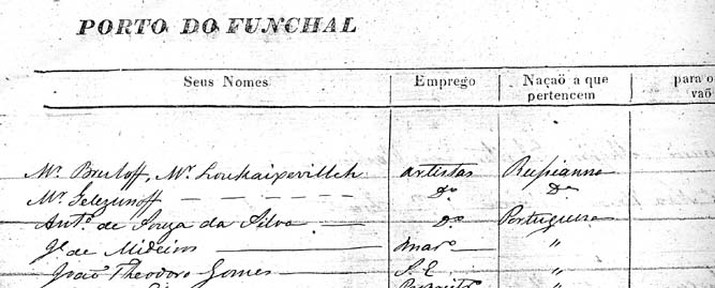 PORTO DO FUNCHAL
Seus Nomes Emprego Naçaõ a que pertencem para o vaõ
Mr. Bruloff, Mr. Loukaixevillch artistas Russianna
Mr. Gelezunoff Do Da
Anto. de Souza da Silva Do. Portugueza
Je. de Mideiros maro. "
João Theodoro Gomes S. E. "